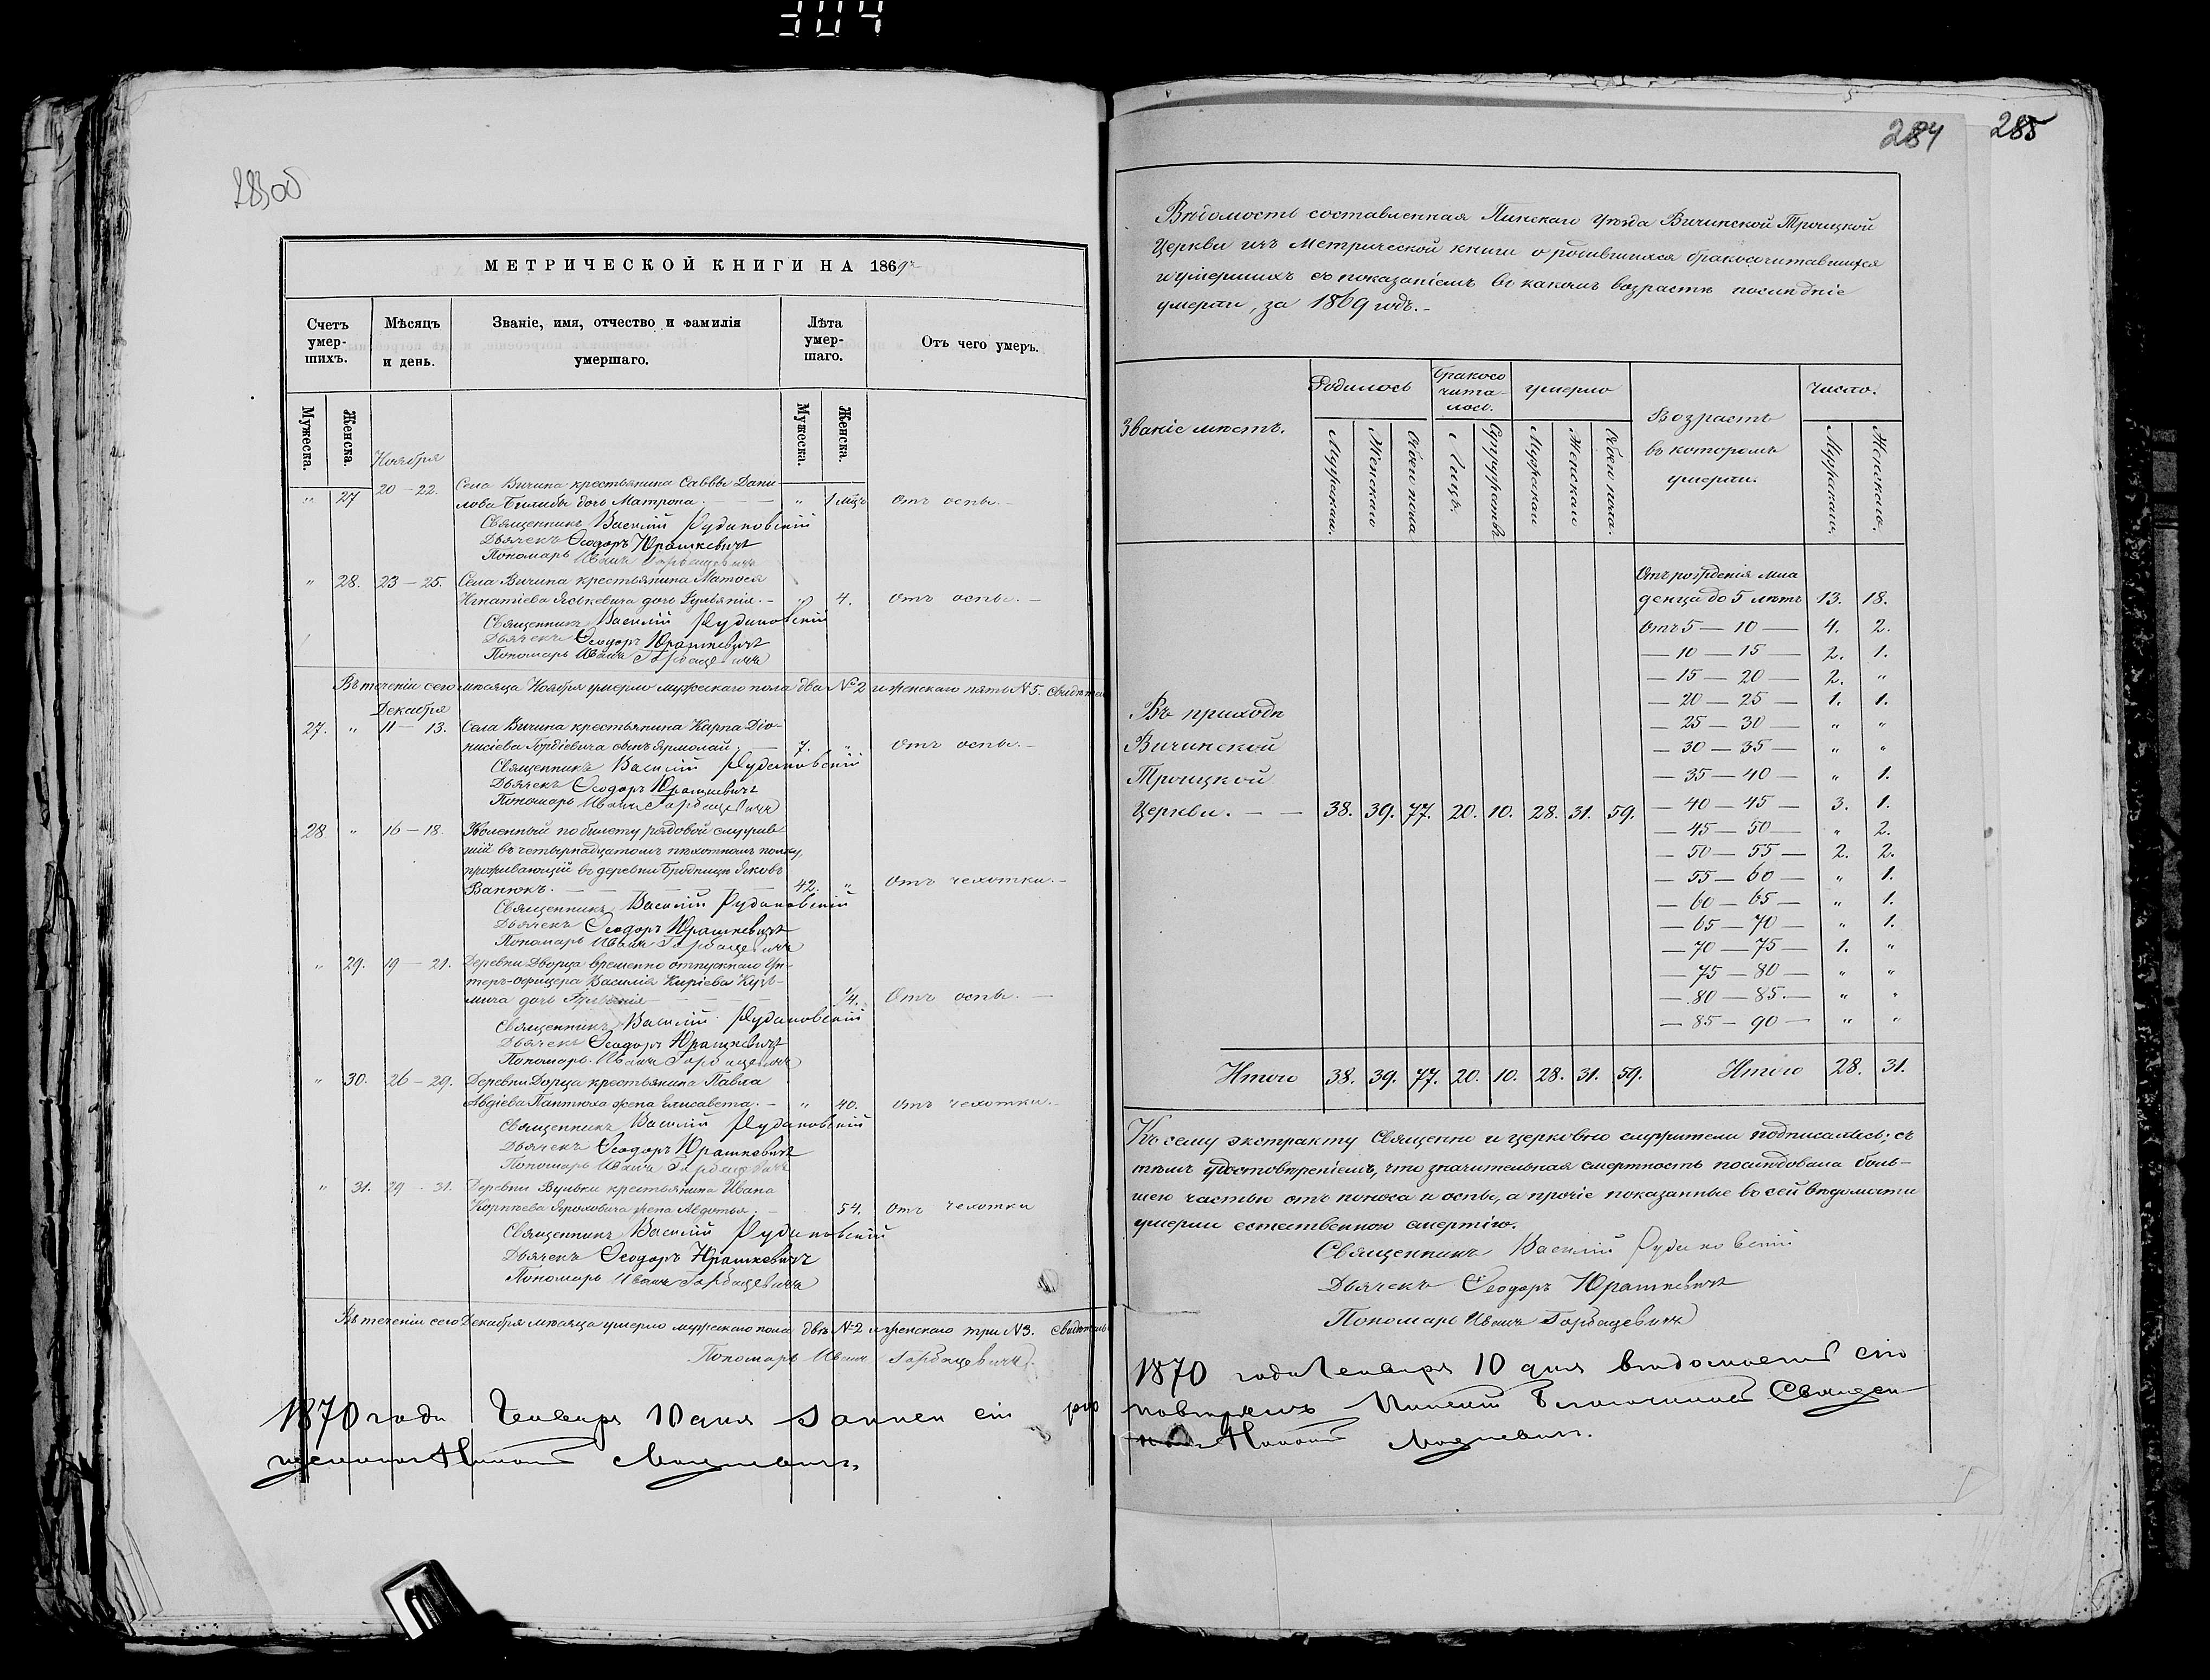 304
283об
МЕТРИЧЕСКОЙ КНИГИ НА 1869 г.
Счетъ умер-шихъ.
Мѣсяцъ и день.
Званіе, имя, отчество и фамилія умершаго.
Лѣта умер-шаго.
Отъ чего умеръ.
Мужеска. Женска. Мужеска. Женска.
Ноября
" 27 20 – 22. Села Вичина крестьянина Саввы Дани-
лова дочь Матрона. — " 1 мцъ Отъ оспы. –
Священникъ Василій Рудаковскій
Дьячекъ Ѳеодоръ Юрашкевичъ
Пономарь Иванъ Горбацевичъ
" 28. 23 – 25. Села Вичина крестьянина Матѳея
Игнатіева Яськевича дочь – " 4. Отъ оспы. –
Священникъ Василій Рудаковскій
Дьячекъ Ѳеодоръ Юрашкевичъ
Пономарь Иванъ Горбацевичъ
Въ теченіи сего мѣсяца Ноября умерло мужескаго пола два №2 и женскаго пять №5.
Декабря
27. " 11 – 13. Села Вичина крестьянина Карпа Діо-
нисіева Гордіевича сынъ Ярмолай. — 7. " Отъ оспы. –
Священникъ Василій Рудаковскій
Дьячекъ Ѳеодоръ Юрашкевичъ
Пономарь Иванъ Горбацевичъ
28 " 16 – 18. Уволенный по билету рядовой служив-
шій въ четырнадцатомъ пѣхотномъ полку,
проживающій въ деревни Бродницѣ Яковъ
Ванюкъ. — 42. " Отъ чехотки. –
Священникъ Василій Рудаковскій
Дьячекъ Ѳеодоръ Юрашкевичъ
Пономарь Иванъ Горбацевичъ
" 29. 19 – 21. Деревни Дворца временно отпускнаго Ун-
теръ-офицера Василія Киріева Кузь-
мича дочь — 1/4. Отъ оспы. —
Священникъ Василій Рудаковскій
Дьячекъ Ѳеодоръ Юрашкевичъ
Пономарь Иванъ Горбацевичъ
" 30. 26 – 29. Деревни Дорца крестьянина Павла
Авдіева Пантюха жена Елисавета. – " 40. Отъ чехотки. –
Священникъ Василій Рудаковскій
Дьячекъ Ѳеодоръ Юрашкевичъ
Пономарь Иванъ Горбацевичъ
" 31. 29 – 31. Деревни Вульки крестьянина Ивана
жена Авдотья. – 54. Отъ чехотки
Священникъ Василій Рудаковскій
Дьячекъ Ѳеодоръ Юрашкевичъ
Пономарь Иванъ Горбацевичъ
Въ теченіи сего Декабря мѣсяца умерло мужескаго пола два №2 и женскаго три №3.
Пономарь Иванъ Горбацевичъ
1870 года Генваря 10 дня
284 285
Вѣдомость составленная Пинскаго уѣзда Вичинской Троицкой
Церкви изъ Метрической книги о родившихся бракосочитавшихся
и умершихъ съ показаніемъ въ какомъ возрастѣ послѣдніе
умерли, за 1869 годъ. –
Званіе мѣстъ.
Родилось
Бракосо чита- лось.
умерло
Возрастъ въ которомъ умерли.
Число.
Мужскаго. Женскаго Обоего пола Лицъ. Супружествъ Мужскаго Женскаго Обоего пола. Мужскаго. Женскаго.
Отъ рожденія мла
денца до 5 лѣтъ 13. 18.
Отъ 5 — 10 — 4. 2.
— 10 — 15 — 2. 1.
— 15 — 20 — 2. "
— 20 — 25 — 1. 1.
— 25 — 30 — " "
— 30 — 35 — " "
— 35 — 40 — " 1.
— 40 — 45 — 3. 1.
— 45 — 50 — " 2.
— 50 — 55 — 2. 2.
— 55 — 60 — " 1.
— 60 — 65 — " 1.
— 65 — 70 — " 1.
— 70 — 75 — 1. "
— 75 — 80 — " "
— 80 — 85. — " "
— 85 — 90 — " "
Въ приходѣ
Вичинской
Троицкой
Церкви. — — 38. 39. 77. 20. 10. 28. 31. 59.
Итого 38. 39. 77. 20. 10. 28. 31. 59. Итого 28. 31.
Къ сему экстракту Священно и церковно служители подписались; съ
тѣмъ удостовѣреніемъ, что значительная смертность послѣдовала боль-
шею частью отъ поноса и оспы, а прочіе показанные въ сей вѣдомости
умерли естественною смертію.
Священникъ Василій Рудаковскій
Дьячекъ Ѳеодоръ Юрашкевичъ
Пономарь Иванъ Горбацевичъ
1870 года Генваря 10 дня вѣдомость сію